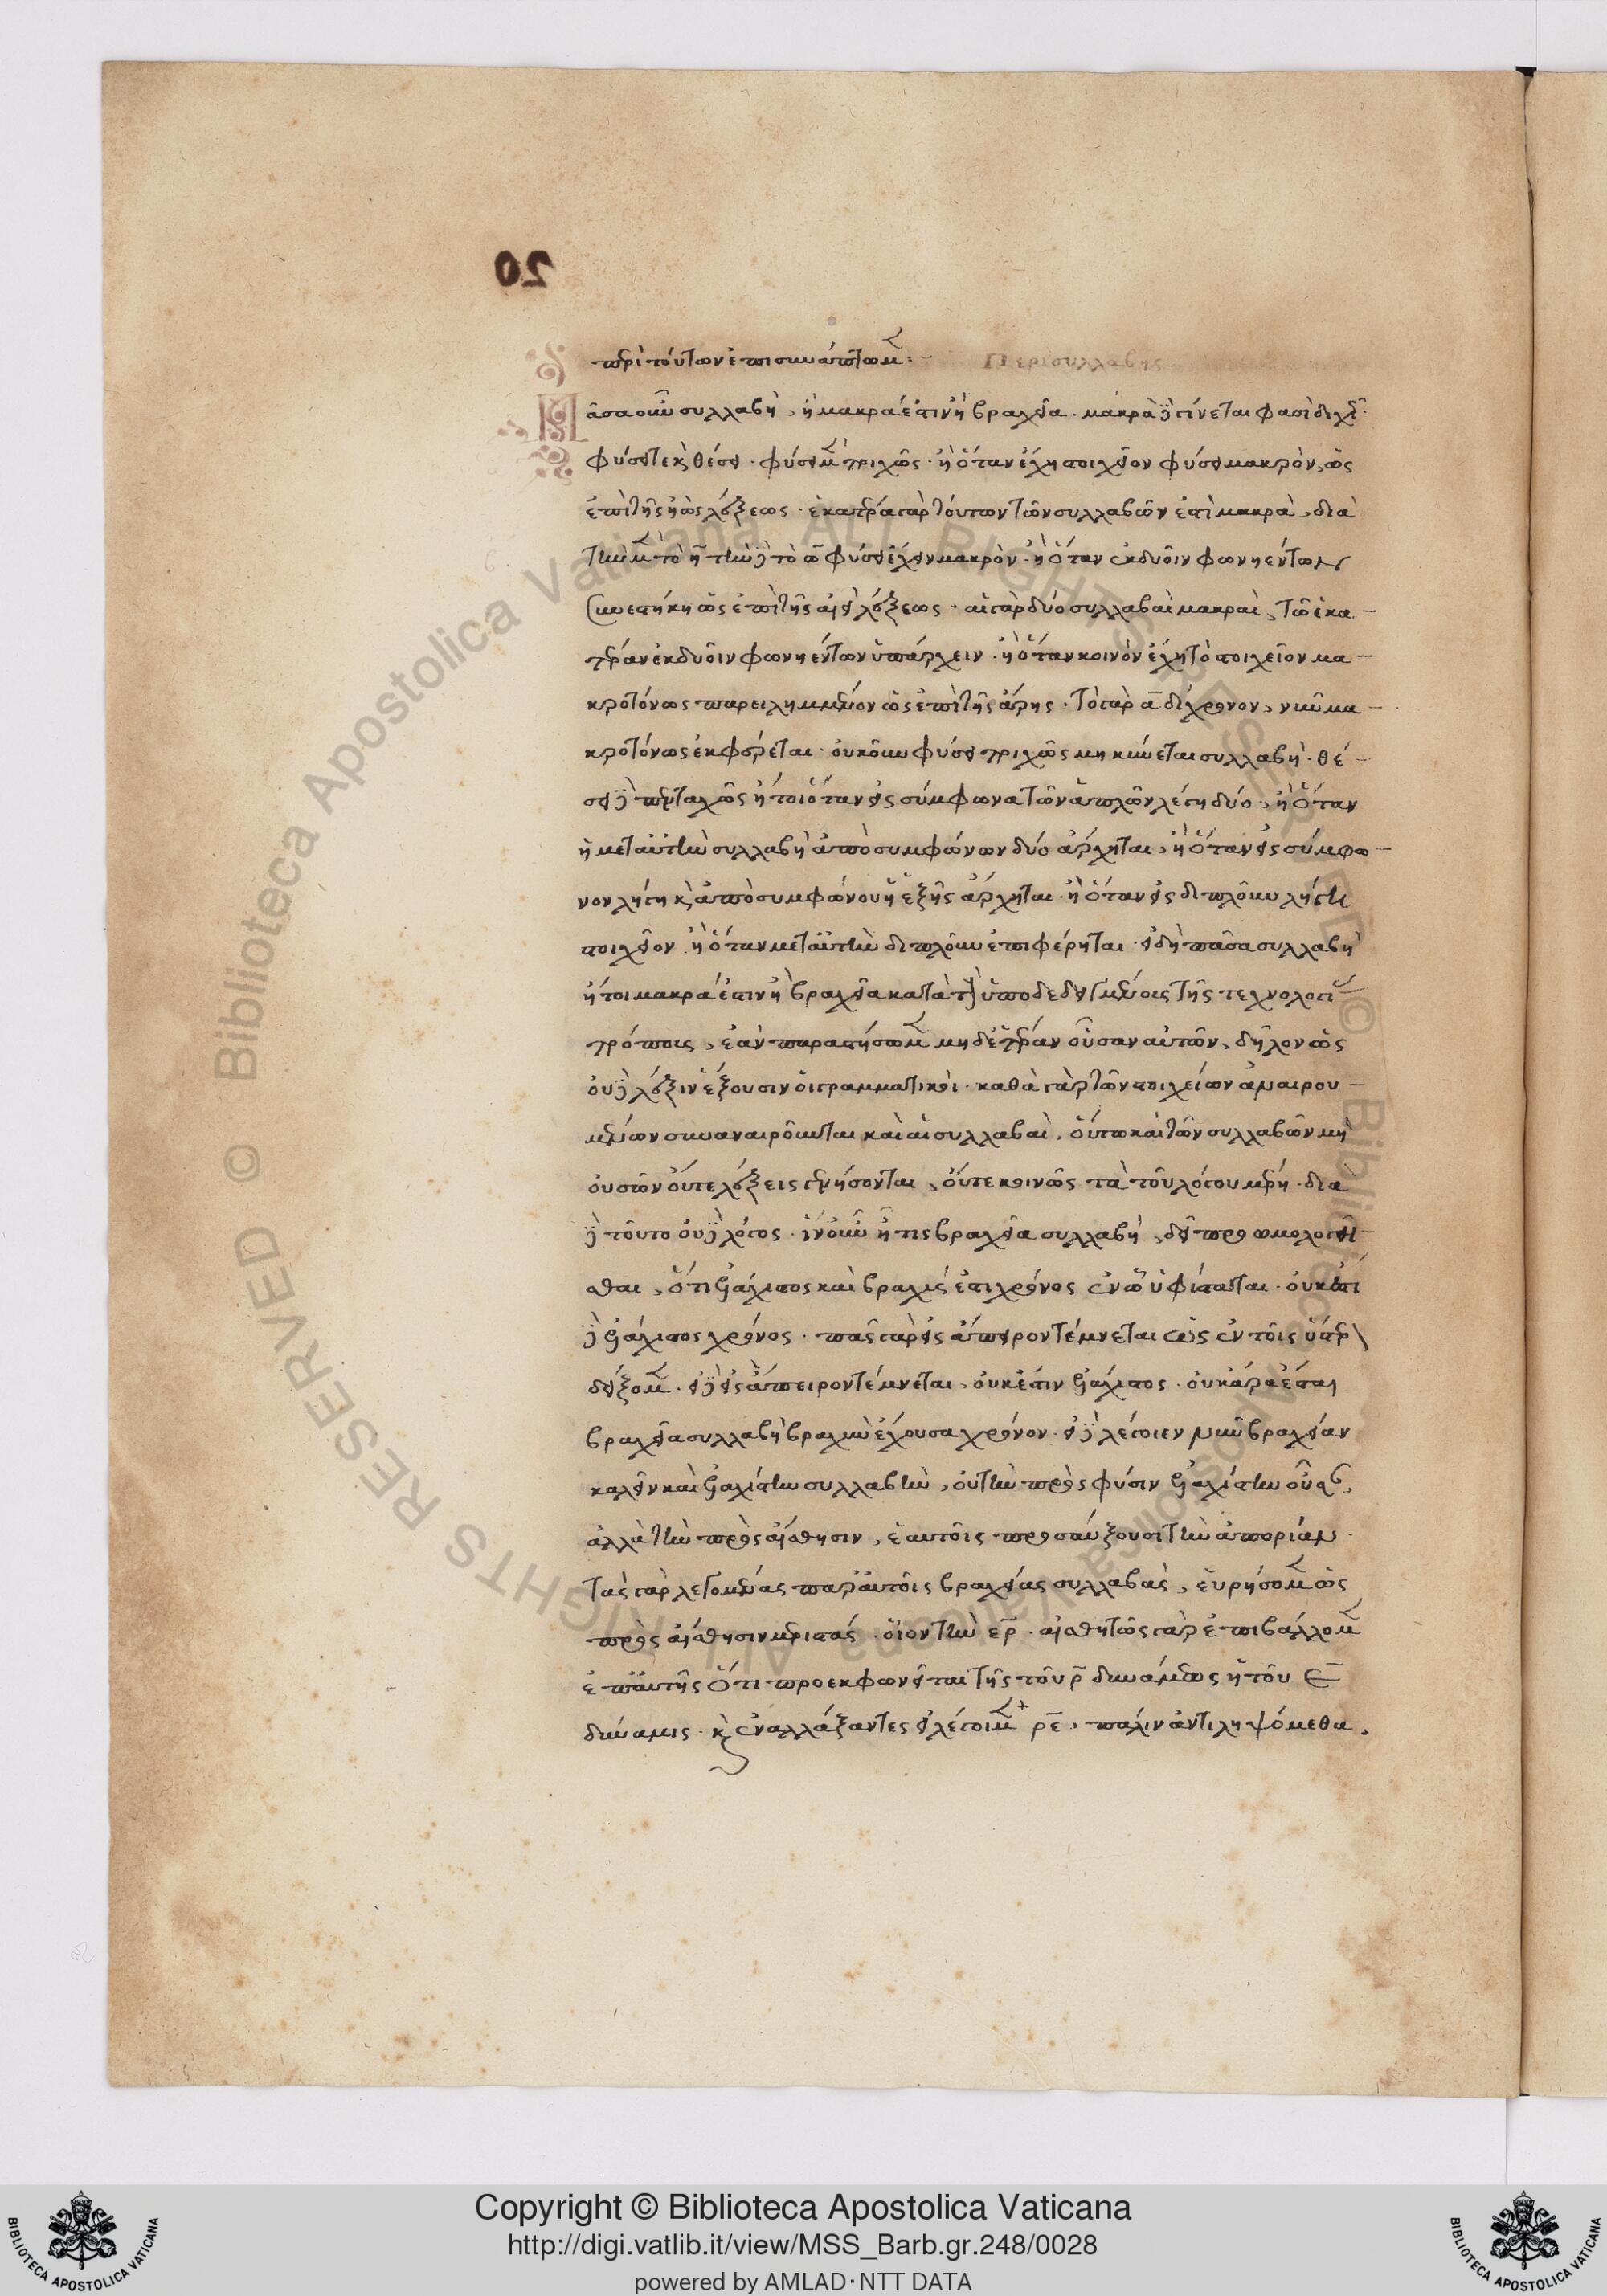 20
περὶ τούτων ἐπισκεπτώμεθα: Περὶ συλλαβῆς
Πᾶσα οὖν συλλαβὴ, ἢ μακρά ἐστιν ἢ βραχεῖα. μακρὰ δὲ γίνεται φασὶ διχῶς.
φύσει τε καὶ θέσει. φύσει μὲν τριχῶς. ἢ ὅταν ἔχῃ στοιχεῖον φύσει μακρὸν, ὡς
ἐπὶ τῆς ἠὼς λέξεως. ἑκατέρα γὰρ τούτων τῶν συλλαβῶν ἐστὶ μακρὰ, διὰ
τὴν μὲν τὸ η̄ τὴν δὲ τὸ ω̄ φύσει ἔχειν μακρὸν. ἢ ὅταν ἐκ δυοῖν φωνηέντων
συνεστήκῃ ὡς ἐπὶ τῆς αἰεὶ λέξεως. αἱ γὰρ δύο συλλαβαὶ μακραὶ, τῷ ἑκα-
τέραν ἐκ δυοῖν φωνηέντων ὑπάρχειν. ἢ ὅταν κοινὸν ἔχῃ τὸ στοιχεῖον μα-
κροτόνως παρειλημμένον ὡς ἐπὶ τῆς ἄρης. τὸ γὰρ ᾱ δίχρονον, νυνὶ μα-
κροτόνως ἐκφέρεται. οὐκοῦν φύσει τριχῶς μηκύνεται συλλαβή. θέ-
σει δὲ πενταχῶς ἤτοι ὅταν εἰς σύμφωνα τῶν ἁπλῶν λέγῃ δύο, ἢ ὅταν
ἡ μετ αὐτὴν συλλαβὴ ἀπὸ συμφώνων δύο ἄρχηται, ἢ ὅταν εἰς σύμφω-
νον λήγῃ καὶ ἀπὸ συμφώνου ἡ ἑξῆς ἄρχηται. ἢ ὅταν εἰς διπλοῦν λήγῃ
στοιχεῖον. ἢ ὅταν μετ αὐτὴν διπλοῦν ἐπιφέρηται. εἰ δὴ πᾶσα συλλαβὴ
ἤτοι μακρά ἐστιν ἢ βραχεῖα κατὰ τοὺς ὑποδεδειγμένους τῆς τεχνολογίας
τρόπους, ἐὰν παραστήσωμεν μηδετέραν οὖσαν αὐτῶν, δῆλον ὡς
οὐδὲ λέξιν ἕξουσιν οἱ γραμματικοὶ. καθὰ γὰρ τῶν στοιχείων ἀναιρου-
μένων συναναιροῦνται καὶ αἱ συλλαβαὶ, οὕτω καὶ τῶν συλλαβῶν μὴ
οὐσῶν οὔτε λέξεις γενήσονται, οὔτε κοινῶς τὰ τοῦ λόγου μέρη. διὰ
δὲ τοῦτο οὐδὲ λόγος. ἵν οὖν ᾖ τις βραχεῖα συλλαβὴ, δεῖ προωμολογεῖ-
σθαι, ὅτι ἐλάχιστος καὶ βραχύς ἐστι χρόνος ἐν ᾧ ὑφίσταται. οὐκ ἔστι
δὲ ἐλάχιστος χρόνος. πᾶς γὰρ εἰς ἄπειρον τέμνεται ὡς ἐν τοῖς ὕστερον
δείξομεν. εἰ δὲ εἰς ἄπειρον τέμνεται, οὐκ ἔστιν ἐλάχιστος. οὐκ ἄρα ἔσται
βραχεῖα συλλαβὴ βραχὺν ἔχουσα χρόνον. εἰ δὲ λέγοιεν νῦν βραχεῖαν
καλεῖν καὶ ἐλαχίστην συλλαβὴν, οὐ τὴν πρὸς φύσιν ἐλαχίστην οὖσαν,
ἀλλὰ τὴν πρὸς αἴσθησιν, ἑαυτοῖς προσαύξουσι τὴν ἀπορίαν.
τὰς γὰρ λεγομένας παρ αὐτοῖς βραχείας συλλαβὰς, εὑρήσομεν ὡς
πρὸς αἴσθησιν μεριστάς. οἷον τὴν ερ̄. αἰσθητῶς γὰρ ἐπιβάλλομεν
ἐπ αὐτῆς ὅτι προεκφωνεῖται τῆς τοῦ ρ̄ δυνάμεως ἡ τοῦ ε̄
δύναμις. καὶ ἐναλλάξαντες εἰ λέγοιμεν ρε̄, πάλιν ἀντιληψόμεθα,
Copyright © Biblioteca Apostolica Vaticana
http://digi.vatlib.it/view/MSS_Barb.gr.248/0028
powered by AMLAD·NTT DATA